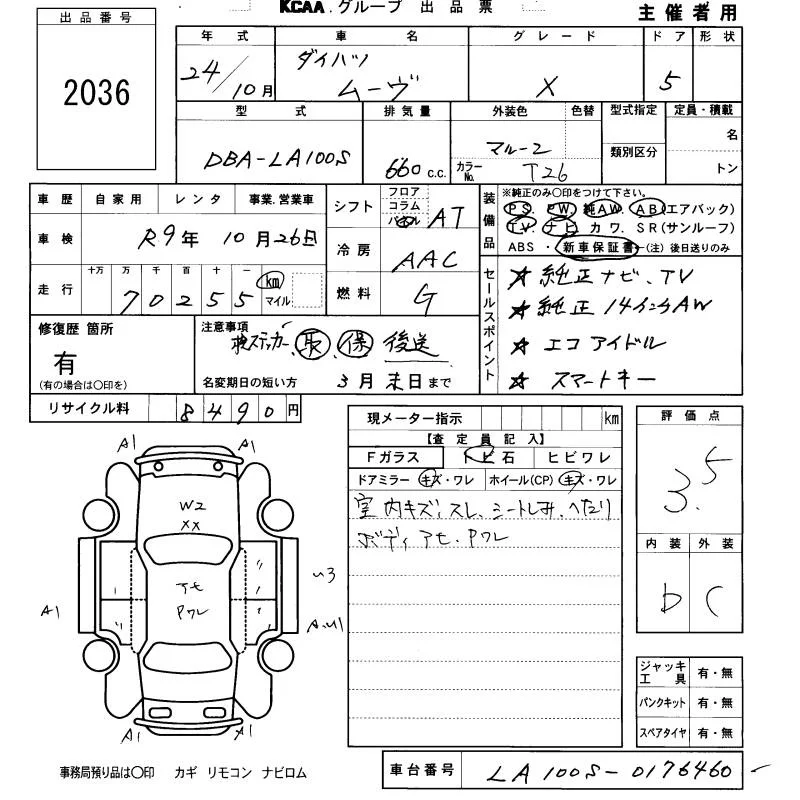 KCAA.グループ 出品票
主催者用
出品番号
2036
年式 車名 グレード ドア 形状
24/10月 ダイハツ ムーヴ X 5 5
型式 排気量 外装色 色替 型式指定 定員・積載
類別区分 名
DBA-LA100S 660 c.c. マルーン カラーNo. T26 トン
車歴 自家用 レンタ 事業.営業車
車検 R9年 10月26日
走行 十万 万 千 百 十 一 km マイル
70255
シフト フロア コラム パネル AT
冷房 AAC
燃料 G
装備品 ※純正のみ〇印をつけて下さい。
PS. PW. 純AW. AB(エアバック)
TV. ナビ カワ. SR(サンルーフ)
ABS・新車保証書(注)後日送りのみ
セールスポイント
☆ 純正ナビ、TV
☆ 純正 14インチAW
☆ エコアイドル
☆ スマートキー
修復歴 箇所
有
(有の場合は〇印を)
注意事項
検ステッカー、取 保 後送
名変期日の短い方 3月末日まで
リサイクル料 8490円
現メーター指示 km
【査定員記入】
Fガラス トビ石 ヒビワレ
ドアミラー キズ・ワレ ホイール(CP) キズ・ワレ
室内キズ、スレ、シートしみ、へたり
ボディ アセ、Pワレ
評価点
3.5
内装 外装
b C
ジャッキ工具 有・無
パンクキット 有・無
スペアタイヤ 有・無
A1 A1
W2
XX
アセ
Pワレ
U3
A1 A.U1
A1 A1
事務局預り品は〇印 カギ リモコン ナビロム
車台番号 LA100S-0176460